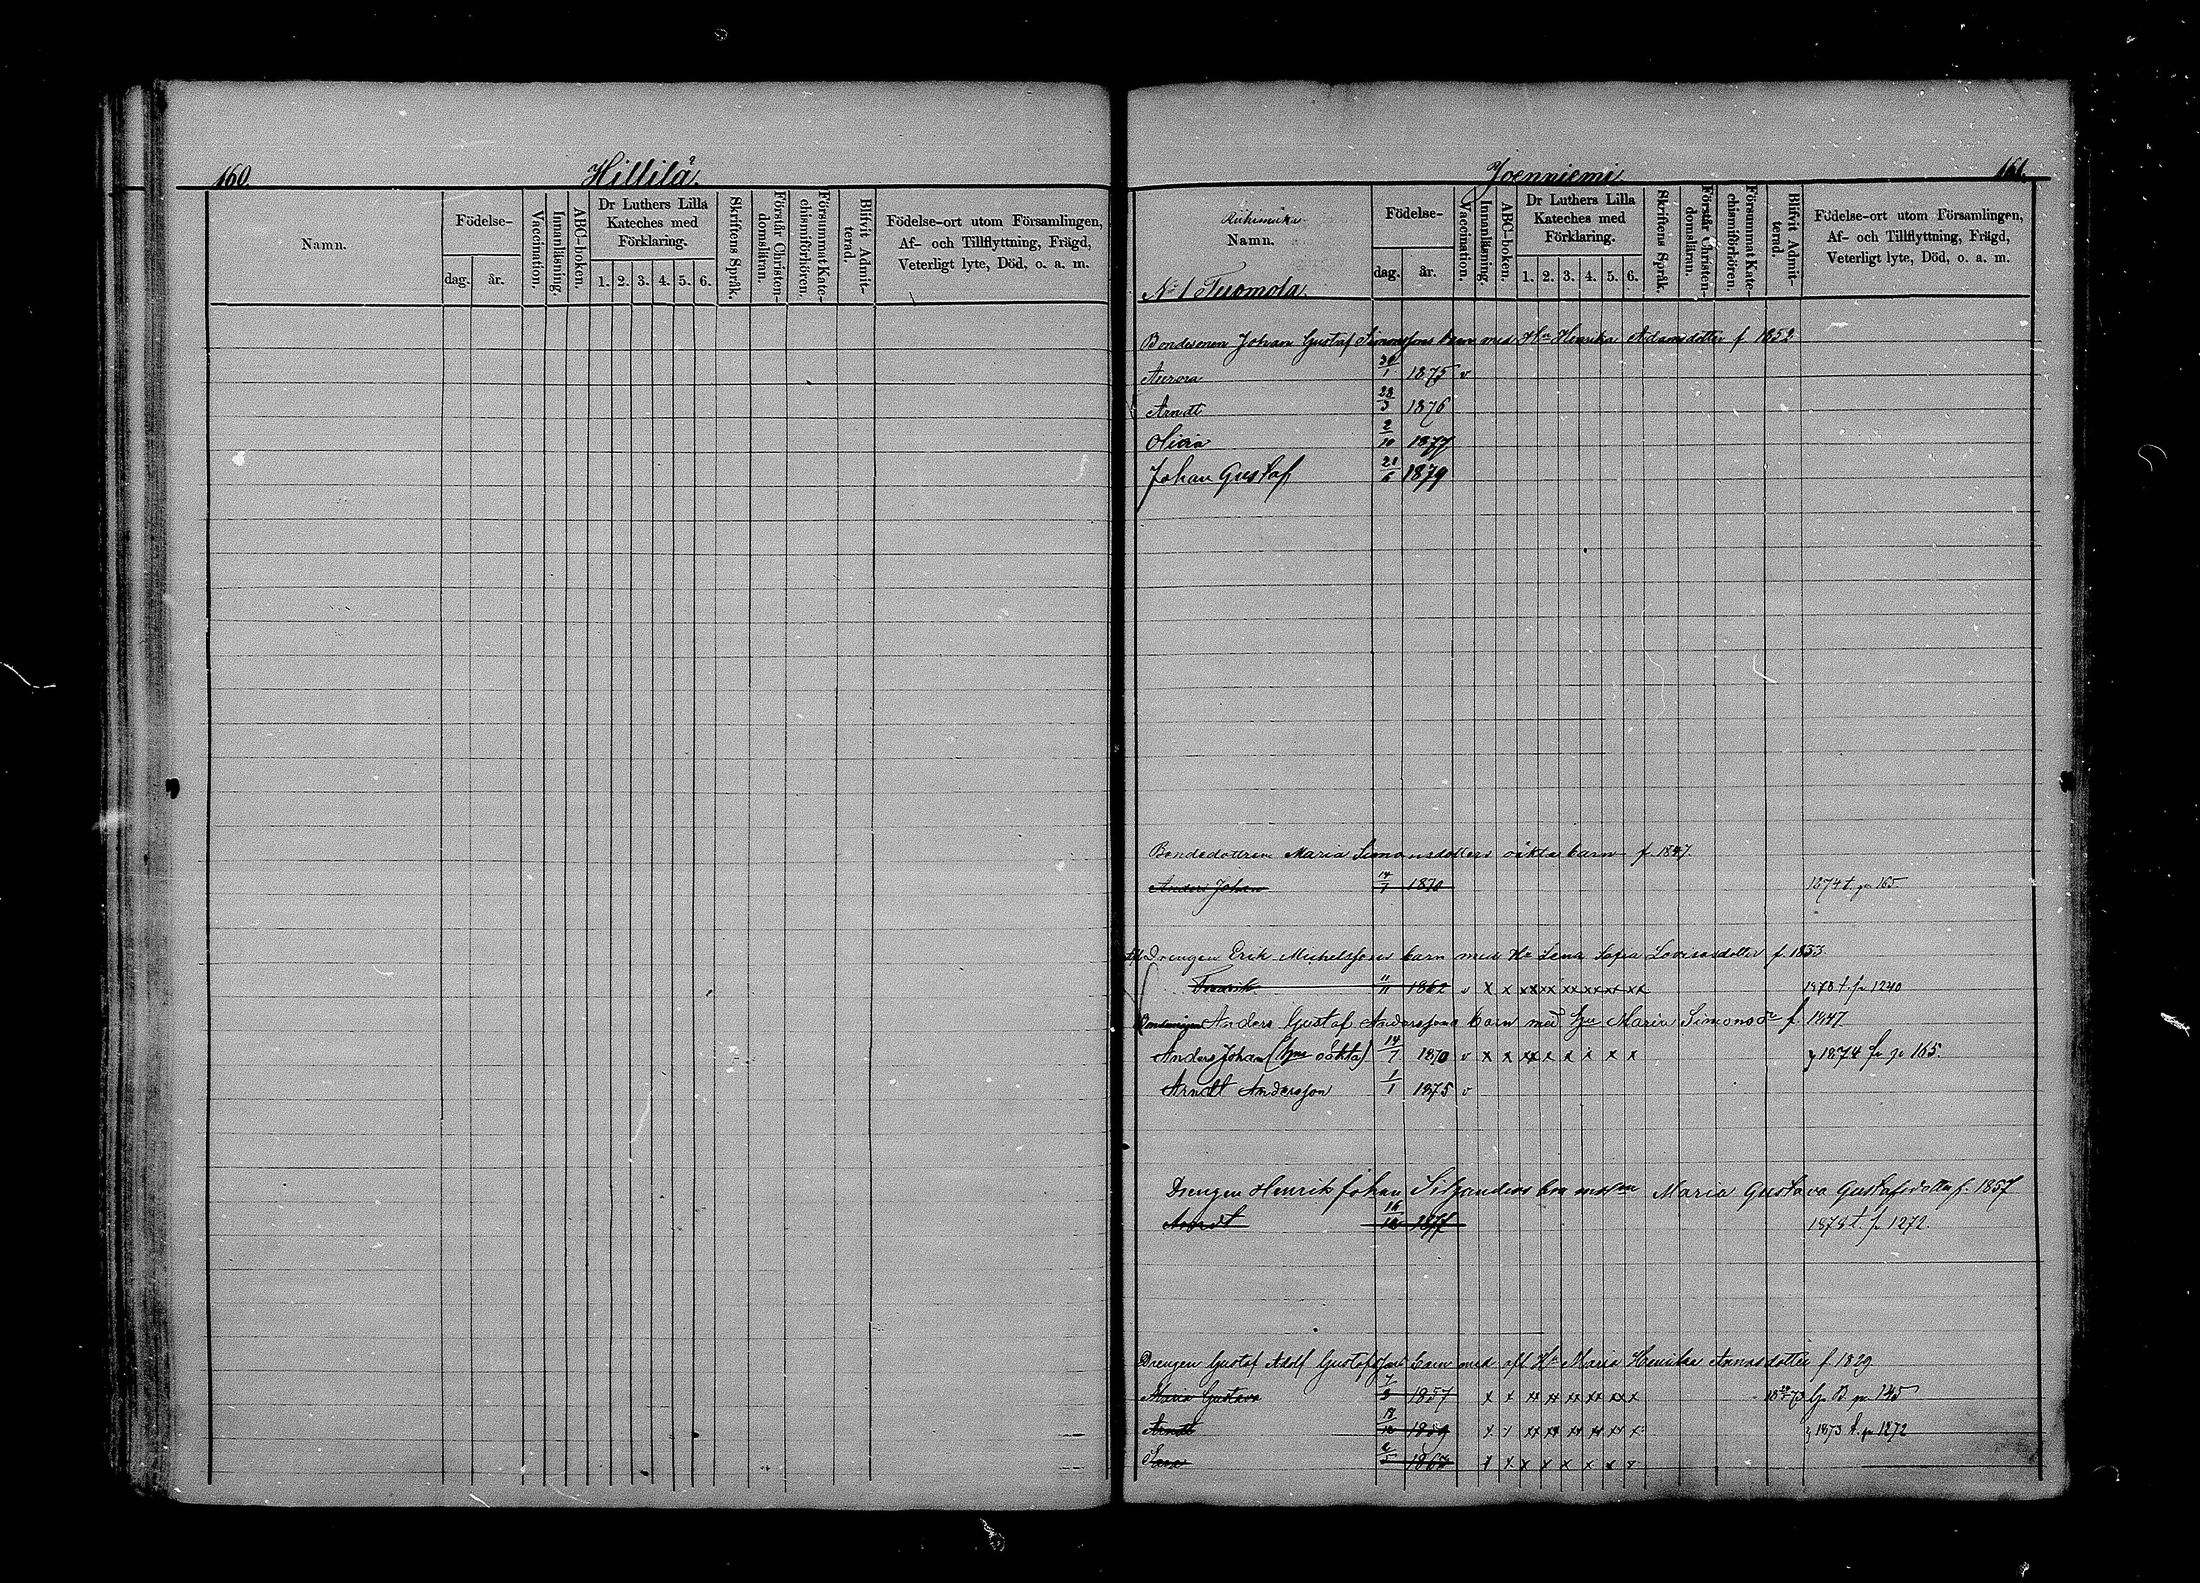 160.
Hillilä.
Namn.
Födelse-
dag.
år.
Vaccination.
Innanläsning.
ABC-boken.
Dr Luthers Lilla
Kateches med
Förklaring.
1. 2. 3. 4. 5. 6.
Skriftens Språk.
Förstår Christen-
domsläran.
Försummat Kate-
chismiförhören.
Blifvit Admit-
terad.
Födelse-ort utom Församlingen,
Af- och Tillflyttning, Frägd,
Veterligt lyte, Död, o. a. m.
Joenniemi
161.
Namn.
Nº 1 Tuomola.
Födelse-
dag.
år.
Vaccination.
Innanläsning.
ABC-boken.
Dr Luthers Lilla
Kateches med
Förklaring.
1. 2. 3. 4. 5. 6.
Skriftens Språk.
Förstår Christen-
domsläran.
Försummat Kate-
chismiförhören.
Blifvit Admit-
terad.
Födelse-ort utom Församlingen,
Af- och Tillflyttning, Frägd,
Veterligt lyte, Död, o. a. m.
Bondesonen Johan Gustaf Simonssons barn med Hu Henrika Adamsdotter f 1852
Aurora 30/1 1875 v
Arndt 23/3 1876
Olivia 2/10 1877
Johan Gustaf 21/6 1879
Bondedottren Maria Simonsdotters oäkta barn f. 1847.
Anders Johan 14/7 1870 1874 t. p 165
Drengen Erik Michelssons barn med Hu Lena Sofia Lovisasdotter f. 1833
Fredrik 11/11 1862 v x x xx xx xx xx xx xx 1878 t. p 1240
Anders Gustaf Anderssons barn med hu Maria Simonsdr f 1847
Anders Johan (hus oäkta) 14/7 1870 v x x xx x x x x x 1874 fr p 165.
Arndt Andersson 1/1 1875 v
Drengen Henrik Johan Silfvanders Maria Gustava Gustafsdotter f. 1857
Arndt 16/12 1877 1878 t. p 1272
Drengen Gustaf Adolf Gustafssons barn med afl Hu Maria Henrika Annasdotter f 1829
Maria Gustava 7/3 1857 x x xx xx xx xx xx x 73 B. p 145
Arndt 18/12 1859 x x xx xx xx xx xx x 1873 t. p 1272
Sara 2/5 1867 x x x x x x x x